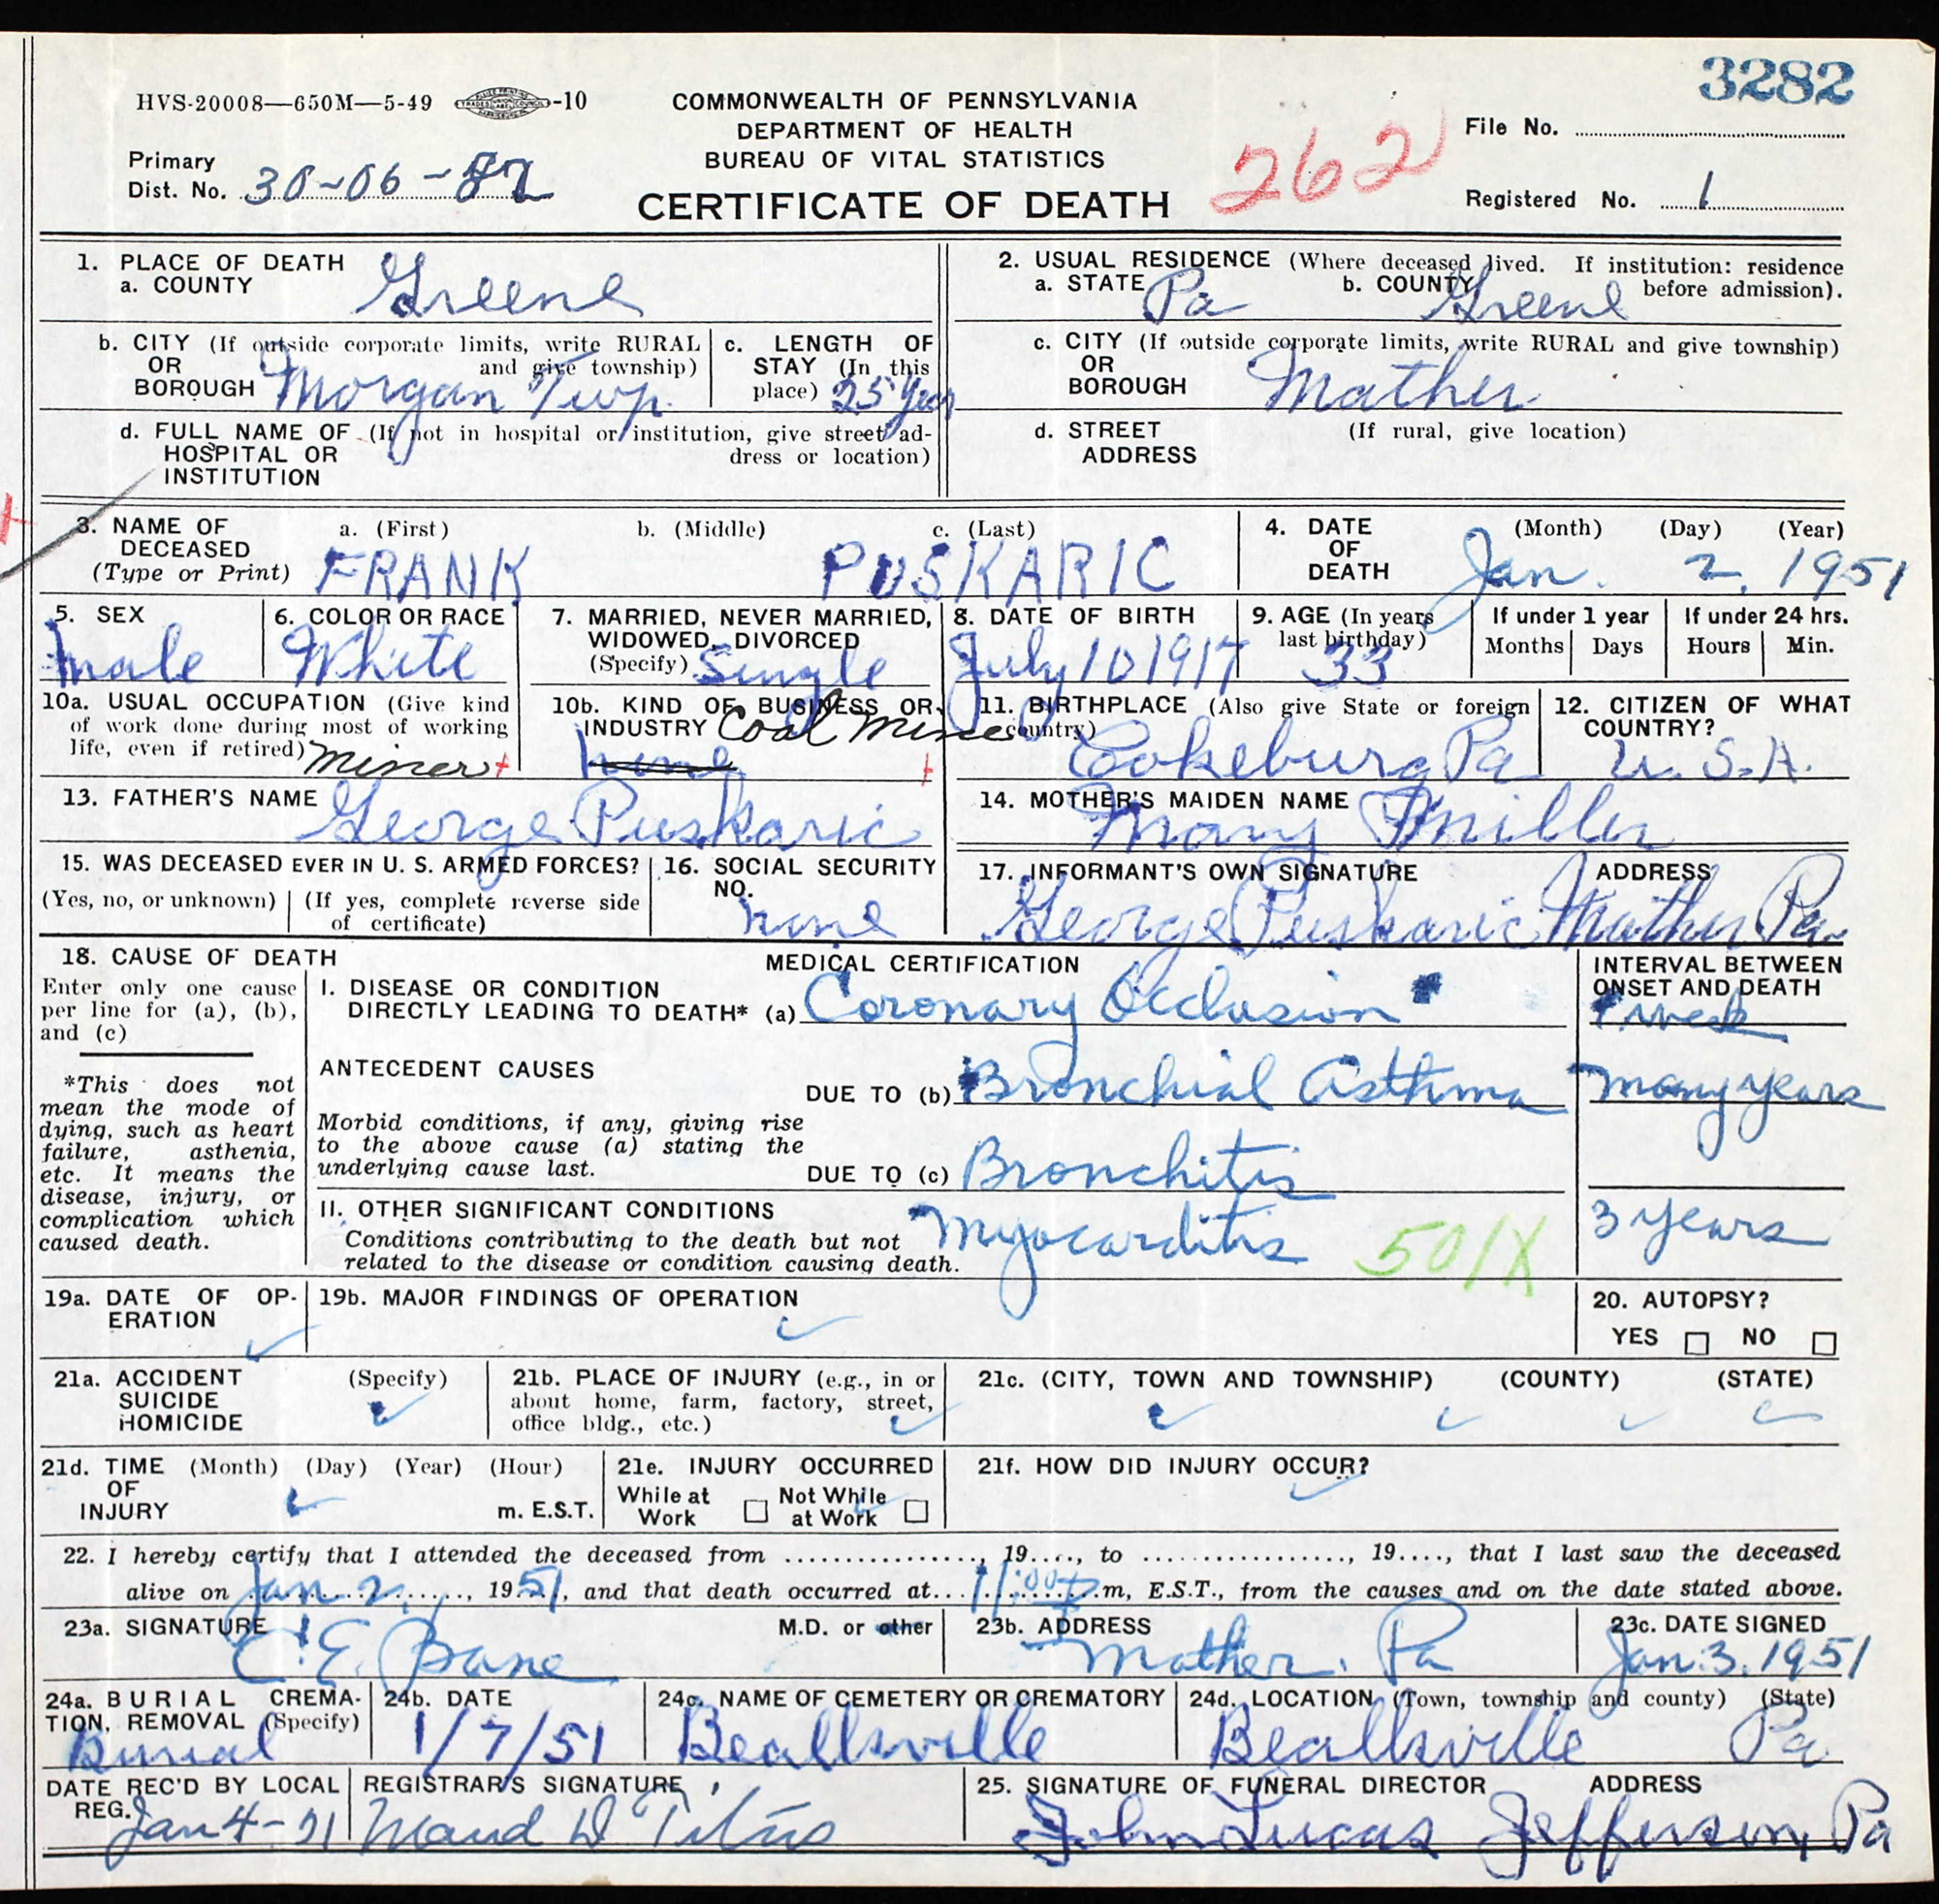 3282
HVS-20008—650M—5-49 -10
COMMONWEALTH OF PENNSYLVANIA
DEPARTMENT OF HEALTH
BUREAU OF VITAL STATISTICS
CERTIFICATE OF DEATH
262
File No.
Primary Dist. No. 30-06-
Registered No. 1
1. PLACE OF DEATH
a. COUNTY Greene
2. USUAL RESIDENCE (Where deceased lived. If institution: residence before admission).
a. STATE Pa b. COUNTY Greene
b. CITY (If outside corporate limits, write RURAL and give township)
OR BOROUGH Morgan Twp.
c. LENGTH OF STAY (In this place) 25 Years
c. CITY (If outside corporate limits, write RURAL and give township)
OR BOROUGH Mather
d. FULL NAME OF (If not in hospital or institution, give street address or location)
HOSPITAL OR
INSTITUTION
d. STREET ADDRESS (If rural, give location)
3. NAME OF DECEASED (Type or Print)
a. (First) b. (Middle) c. (Last)
FRANK PUSKARIC
4. DATE OF DEATH (Month) (Day) (Year)
Jan. 2, 1951
5. SEX
male
6. COLOR OR RACE
White
7. MARRIED, NEVER MARRIED, WIDOWED, DIVORCED (Specify) Single
8. DATE OF BIRTH
July 10 1917
9. AGE (In years last birthday)
33
If under 1 year
Months Days
If under 24 hrs.
Hours Min.
10a. USUAL OCCUPATION (Give kind of work done during most of working life, even if retired) miner
10b. KIND OF BUSINESS OR INDUSTRY Coal Mines
none
11. BIRTHPLACE (Also give State or foreign country)
Cokeburg Pa
12. CITIZEN OF WHAT COUNTRY?
U.S.A.
13. FATHER'S NAME George Puskaric
14. MOTHER'S MAIDEN NAME Mary Miller
15. WAS DECEASED EVER IN U. S. ARMED FORCES?
(Yes, no, or unknown) (If yes, complete reverse side of certificate)
16. SOCIAL SECURITY NO.
none
17. INFORMANT'S OWN SIGNATURE ADDRESS
George Puskaric Mather Pa.
18. CAUSE OF DEATH
Enter only one cause per line for (a), (b), and (c)
*This does not mean the mode of dying, such as heart failure, asthenia, etc. It means the disease, injury, or complication which caused death.
MEDICAL CERTIFICATION
INTERVAL BETWEEN ONSET AND DEATH
I. DISEASE OR CONDITION
DIRECTLY LEADING TO DEATH* (a) Coronary Occlusion
1 week
ANTECEDENT CAUSES
DUE TO (b) Bronchial Asthma
many years
Morbid conditions, if any, giving rise to the above cause (a) stating the underlying cause last.
DUE TO (c) Bronchitis
II. OTHER SIGNIFICANT CONDITIONS
Conditions contributing to the death but not related to the disease or condition causing death.
Myocarditis
501X
3 years
19a. DATE OF OPERATION
19b. MAJOR FINDINGS OF OPERATION
20. AUTOPSY?
YES NO
21a. ACCIDENT SUICIDE HOMICIDE (Specify)
21b. PLACE OF INJURY (e.g., in or about home, farm, factory, street, office bldg., etc.)
21c. (CITY, TOWN AND TOWNSHIP) (COUNTY) (STATE)
21d. TIME OF INJURY (Month) (Day) (Year) (Hour)
m. E.S.T.
21e. INJURY OCCURRED
While at Work Not While at Work
21f. HOW DID INJURY OCCUR?
22. I hereby certify that I attended the deceased from ................, 19...., to ................, 19...., that I last saw the deceased
alive on Jan 2, 1951, and that death occurred at 11:00 P.m, E.S.T., from the causes and on the date stated above.
23a. SIGNATURE M.D. or other
C. E. Bane
23b. ADDRESS
Mather, Pa
23c. DATE SIGNED
Jan. 3. 1951
24a. BURIAL CREMATION, REMOVAL (Specify)
Burial
24b. DATE
1/7/51
24c. NAME OF CEMETERY OR CREMATORY
Beallsville
24d. LOCATION (Town, township and county) (State)
Beallsville Pa
DATE REC'D BY LOCAL REG.
Jan 4-51
REGISTRAR'S SIGNATURE
Maud D Titus
25. SIGNATURE OF FUNERAL DIRECTOR ADDRESS
John Lucas Jefferson, Pa